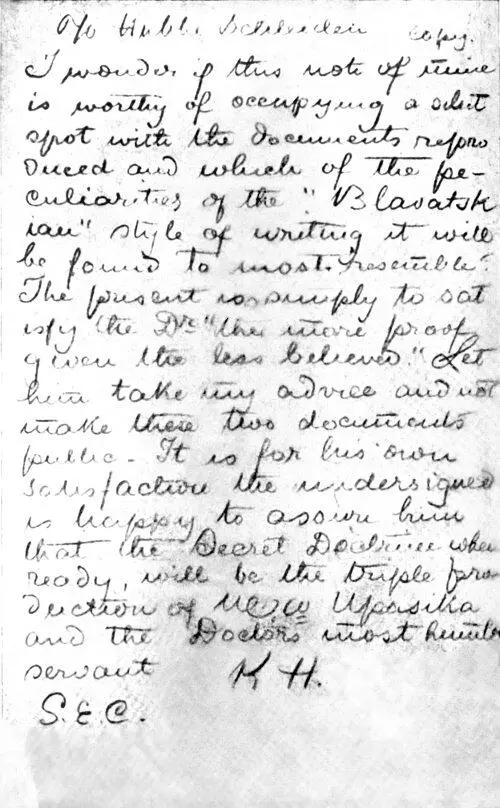 To Hübbe Schleiden copy.
I wonder if this note of mine
is worthy of occupying a select
spot with the documents repro
duced and which of the pe-
culiarities of the "Blavatsk
ian" style of writing it will
be found to most resemble?
The present is simply to sat
isfy the Dr. "the more proof
given the less believed." Let
him take my advice and not
make these two documents
public. It is for his own
satisfaction the undersigned
is happy to assure him
that the Secret Doctrine when
ready, will be the triple pro
duction of Upasika
and the Doctors most humble
servant K H.
S.E.C.